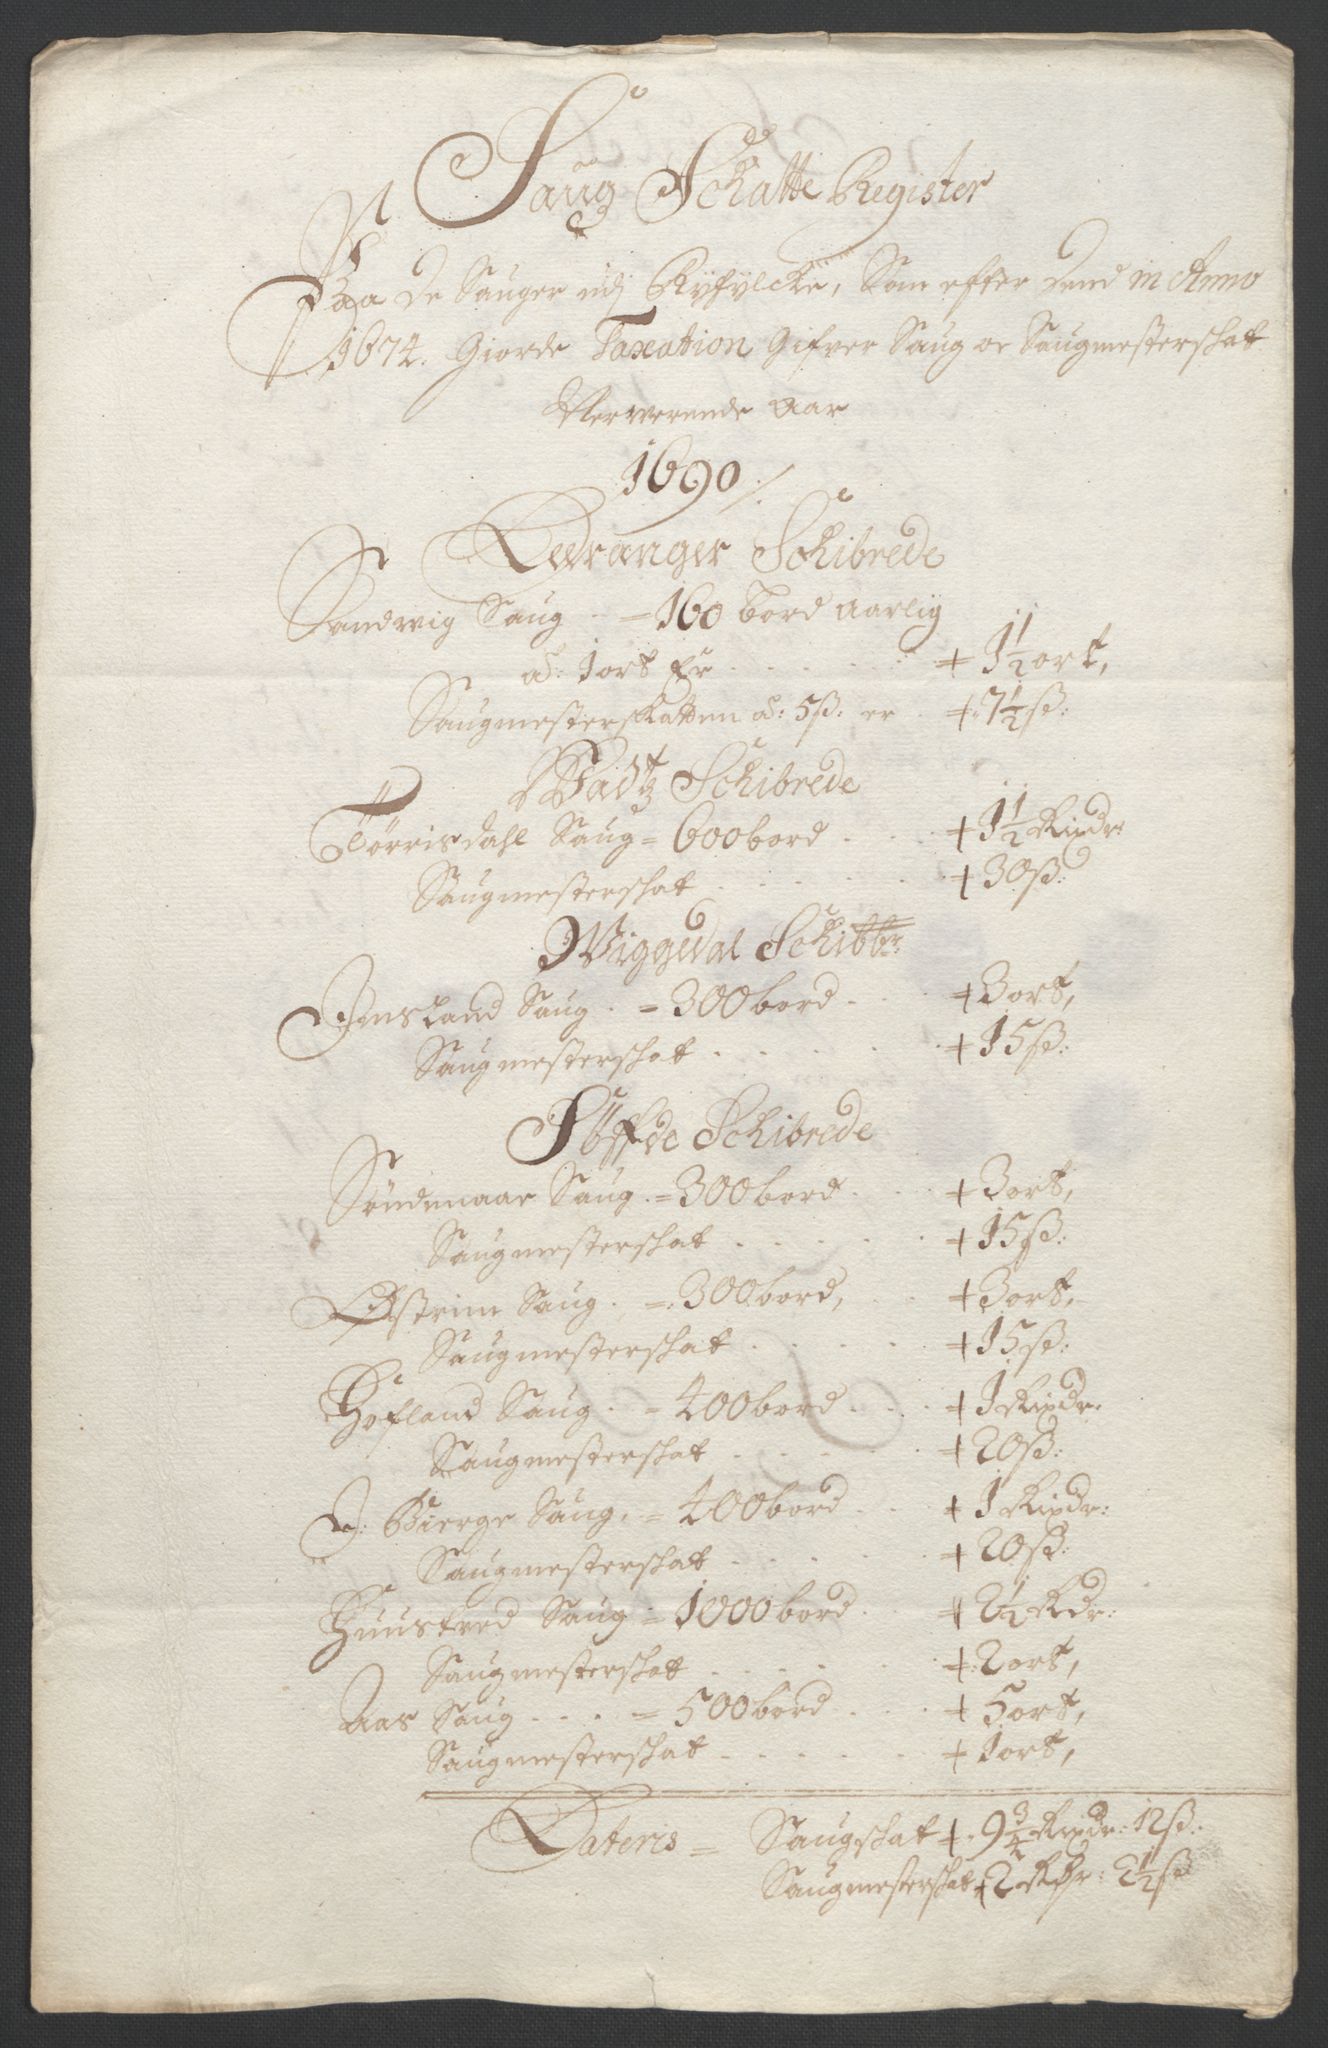 Saug Schatte Register
Paa De Sauger udj Ryfylcke, Som efter dend in Anno
1674. Giorde Taxation Gifver Saug oc Saugmesterschat
Nerwerende Aar
1690
Leeranger Schibrede
Sandwig Saug - = 160 bord aarlig
a: 1 ort Er . . . . + 1½ ort,
Saugmesterskatten a: 5 ß: er . + 7½ ß:
Wadtz Schibrede
Tørrisdahl Saug = 600 bord . . + 1½ Rixdr:
Saugmesterschat . . . . . + 30 ß:
Wiggedal Schibbr:
Imsland Saug . = 300 bord . . + 3 ort,
Saugmesterschat . . . . . + 15 ß:
Søffde Schibrede
Søndenaar Saug . = 300 bord . . + 3 ort,
Saugmesterschat . . . . . + 15 ß:
Østrim Saug . = 300 bord, . . + 3 ort,
Saugmesterschat . . . . . + 15 ß:
Hofland Saug . = 400 bord . . . + 1 Rixdr:
Saugmesterschat . . . . . + 20 ß:
J: Bierge Saug, = 400 bord . . + 1 Rixdr:
Saugmesterschat . . . . . + 20 ß:
Huustved Saug = 1000 bord . . + 2½ Rdr:
Saugmesterschat . . . . . + 2 ort,
Aas Saug . . . = 500 bord . . . + 5 ort,
Saugmesterschat . . . . . + 1 ort,
Lateris = Saugschat + 9¾ Rixdr: 12 ß:
Saugmesterschat + 2 Rdr: 2½ ß